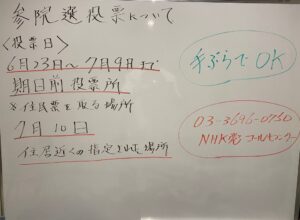 参院選投票について
<投票日>
6月23日〜7月9日まで
期日前投票所
※住民票を取る場所
7月10日
住居近くの指定された場所
手ぶらでOK
03-3696-0750
NHK コールセンター